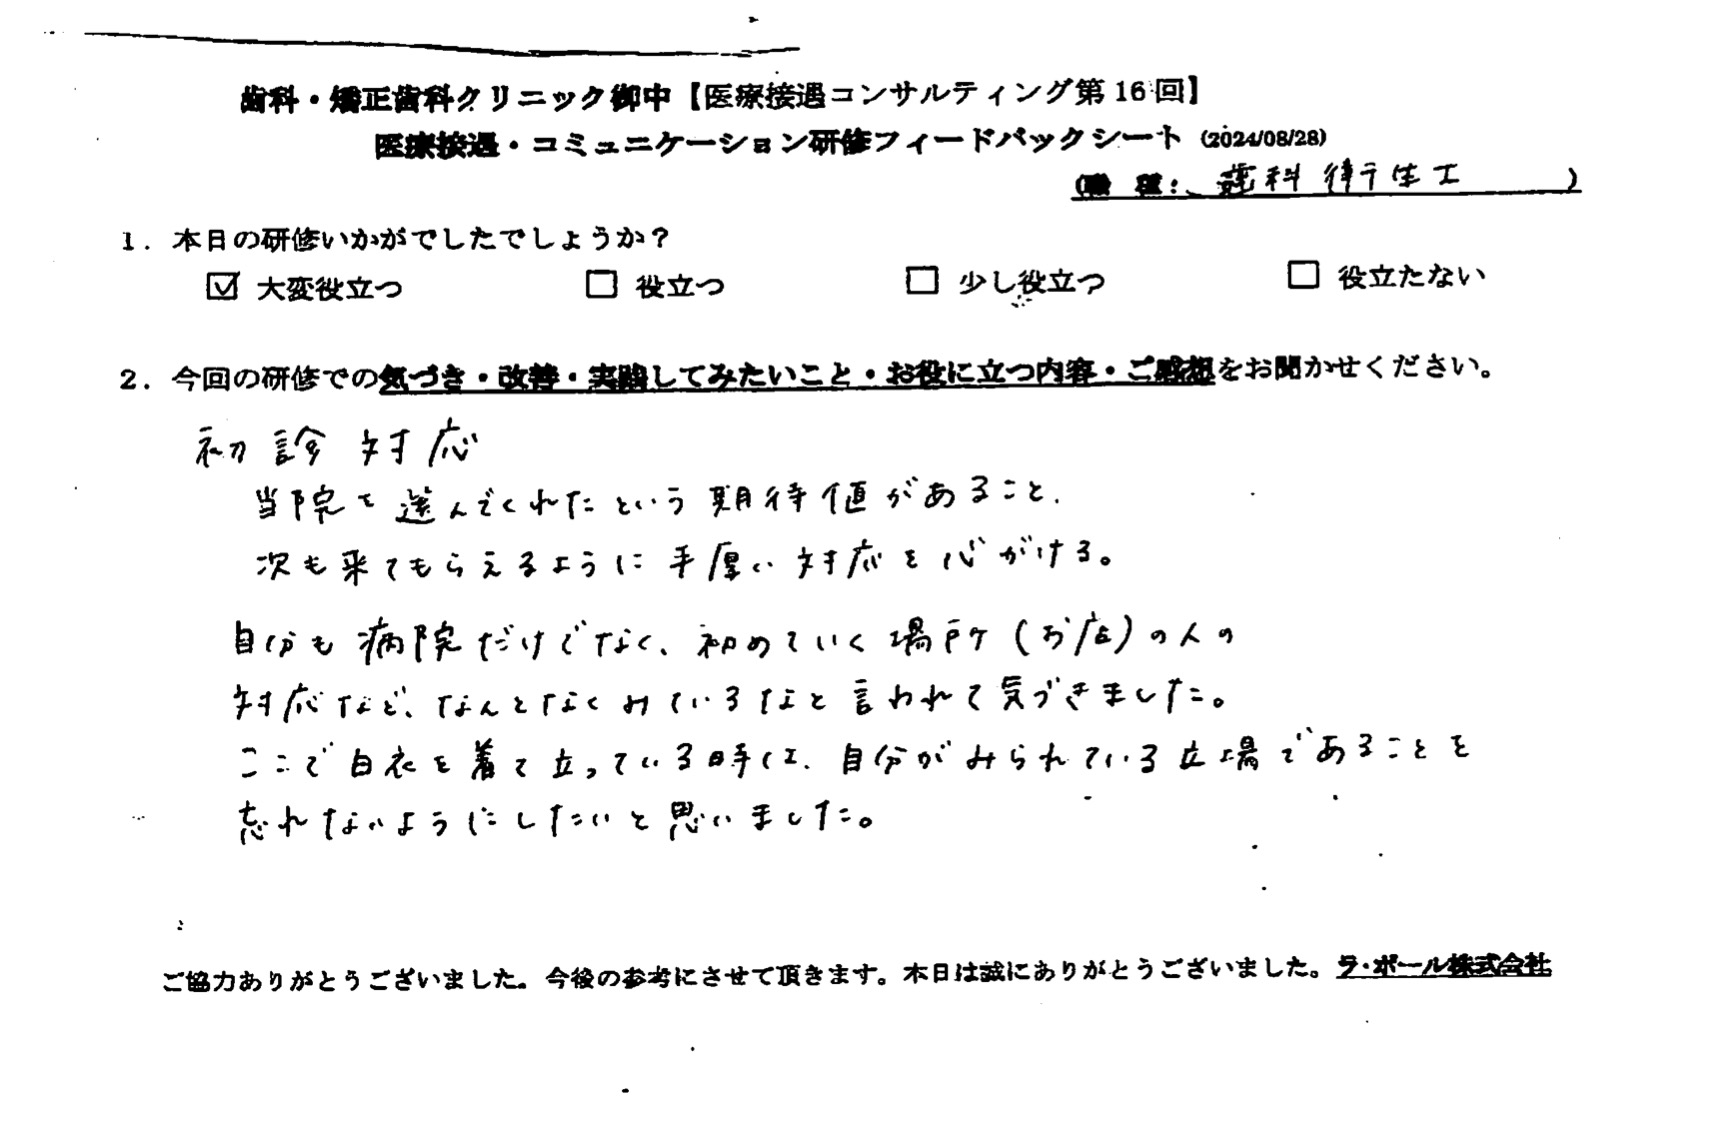 歯科・矯正歯科クリニック御中【医療接遇コンサルティング第16回】
医療接遇・コミュニケーション研修フィードバックシート (2024/08/28)
(職 種: 歯科衛生士 )
1. 本日の研修いかがでしたでしょうか？
☑ 大変役立つ □ 役立つ □ 少し役立つ □ 役立たない
2. 今回の研修での気づき・改善・実践してみたいこと・お役に立つ内容・ご感想をお聞かせください。
初診対応
当院を選んでくれたという期待値があること、
次も来てもらえるように手厚い対応を心がける。
自分も病院だけでなく、初めていく場所（お店）の人の
対応など、なんとなくみているなと言われて気づきました。
ここで白衣を着て立っている時は、自分がみられている立場であることを
忘れないようにしたいと思いました。
ご協力ありがとうございました。今後の参考にさせて頂きます。本日は誠にありがとうございました。ラ・ポール株式会社